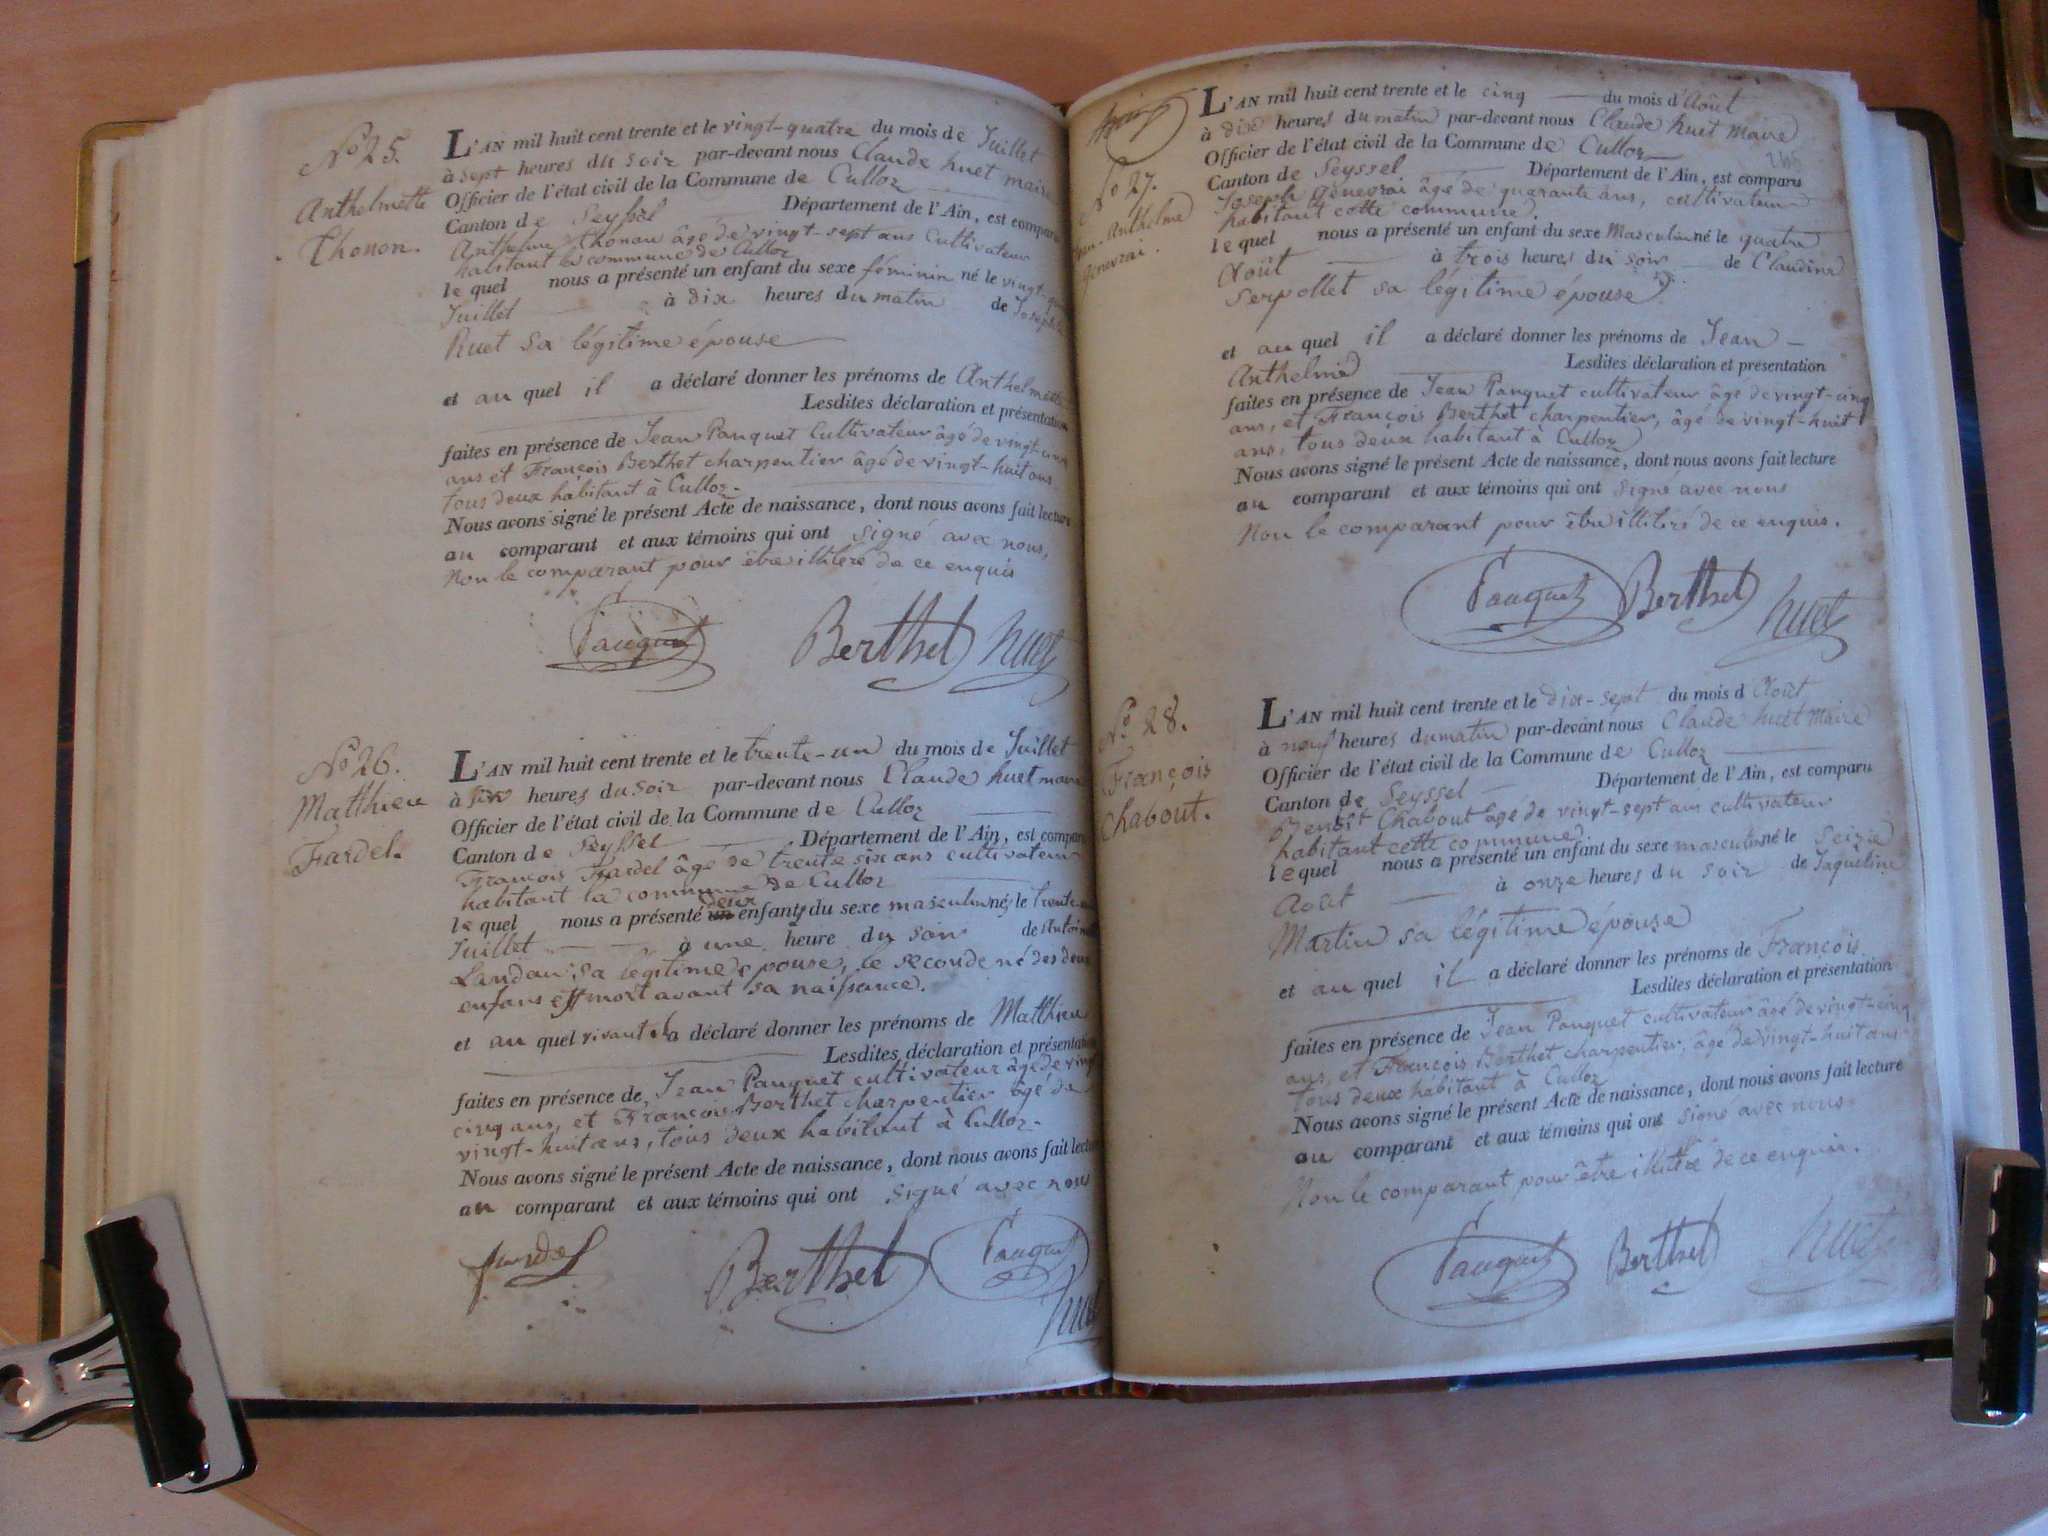 No 25.
Anthelmette
Thonon.
L'AN mil huit cent trente et le vingt-quatre du mois de Juillet
à sept heures du soir par-devant nous Claude huet maire
Officier de l'état civil de la Commune de Culloz
Canton de Seyssel Département de l'Ain, est comparu
Anthelme Thonon âgé de vingt-sept ans Cultivateur
habitant la commune de Culloz
lequel nous a présenté un enfant du sexe féminin né le vingt-
Juillet à dix heures du matin de Josephte
Ruet sa légitime épouse
et au quel il a déclaré donner les prénoms de Anthelmette
Lesdites déclaration et présentation
faites en présence de Jean Pauquet Cultivateur âgé de vingt-cinq
ans et François Berthet charpentier âgé de vingt-huit ans
tous deux habitant à Culloz.
Nous avons signé le présent Acte de naissance, dont nous avons fait lecture
au comparant et aux témoins qui ont signé avec nous,
Non le comparant pour être illitéré de ce enquis
Pauquet Berthet huet
No 26.
Matthieu
Fardel.
L'AN mil huit cent trente et le trente-un du mois de Juillet
à six heures du soir par-devant nous Claude huet maire
Officier de l'état civil de la Commune de Culloz
Canton de Seyssel Département de l'Ain, est comparu
François Fardel âgé de trente six ans cultivateur
habitant la commune de Culloz
lequel nous a présenté un deux enfants du sexe masculin nés le trente-un
Juillet à une heure du soir de Antoinette
Landau sa légitime épouse, le seconde né des deux
enfans est mort avant sa naissance.
et au quel vivant il a déclaré donner les prénoms de Matthieu
Lesdites déclaration et présentation
faites en présence de Jean Pauquet cultivateur âgé de vingt
cinq ans, et François Berthet charpentier âgé de
vingt-huit ans, tous deux habitant à Culloz.
Nous avons signé le présent Acte de naissance, dont nous avons fait lecture
au comparant et aux témoins qui ont signé avec nous
fardel Berthet Pauquet
huet
No 27.
Jean-Anthelme
Genevrai.
L'AN mil huit cent trente et le cinq du mois d'Août
à dix heures du matin par-devant nous Claude huet Maire
Officier de l'état civil de la Commune de Culloz
Canton de Seyssel Département de l'Ain, est comparu
Joseph Genevrai âgé de quarante ans, cultivateur
habitant cette commune.
lequel nous a présenté un enfant du sexe Masculin né le quatre
Août à trois heures du soir de Claudine
Serpollet sa légitime épouse
et au quel il a déclaré donner les prénoms de Jean
Anthelme Lesdites déclaration et présentation
faites en présence de Jean Pauquet cultivateur âgé de vingt-cinq
ans, et François Berthet charpentier, âgé de vingt-huit
ans, tous deux habitant à Culloz
Nous avons signé le présent Acte de naissance, dont nous avons fait lecture
au comparant et aux témoins qui ont signé avec nous
Non le comparant pour être illitéré de ce enquis.
Pauquet Berthet huet
No 28.
François
Chabout.
L'AN mil huit cent trente et le dix-sept du mois d'Août
à neuf heures du matin par-devant nous Claude huet Maire
Officier de l'état civil de la Commune de Culloz
Canton de Seyssel Département de l'Ain, est comparu
Benoît Chabout âgé de vingt-sept ans cultivateur
habitant cette commune
lequel nous a présenté un enfant du sexe masculin né le seize
Août à onze heures du soir de Jaqueline
Martin sa légitime épouse
et au quel il a déclaré donner les prénoms de François.
Lesdites déclaration et présentation
faites en présence de Jean Pauquet cultivateur âgé de vingt-cinq
ans, et François Berthet charpentier, âgé de vingt-huit ans
tous deux habitant à Culloz
Nous avons signé le présent Acte de naissance, dont nous avons fait lecture
au comparant et aux témoins qui ont signé avec nous.
Non le comparant pour être illitéré de ce enquis.
Pauquet Berthet huet